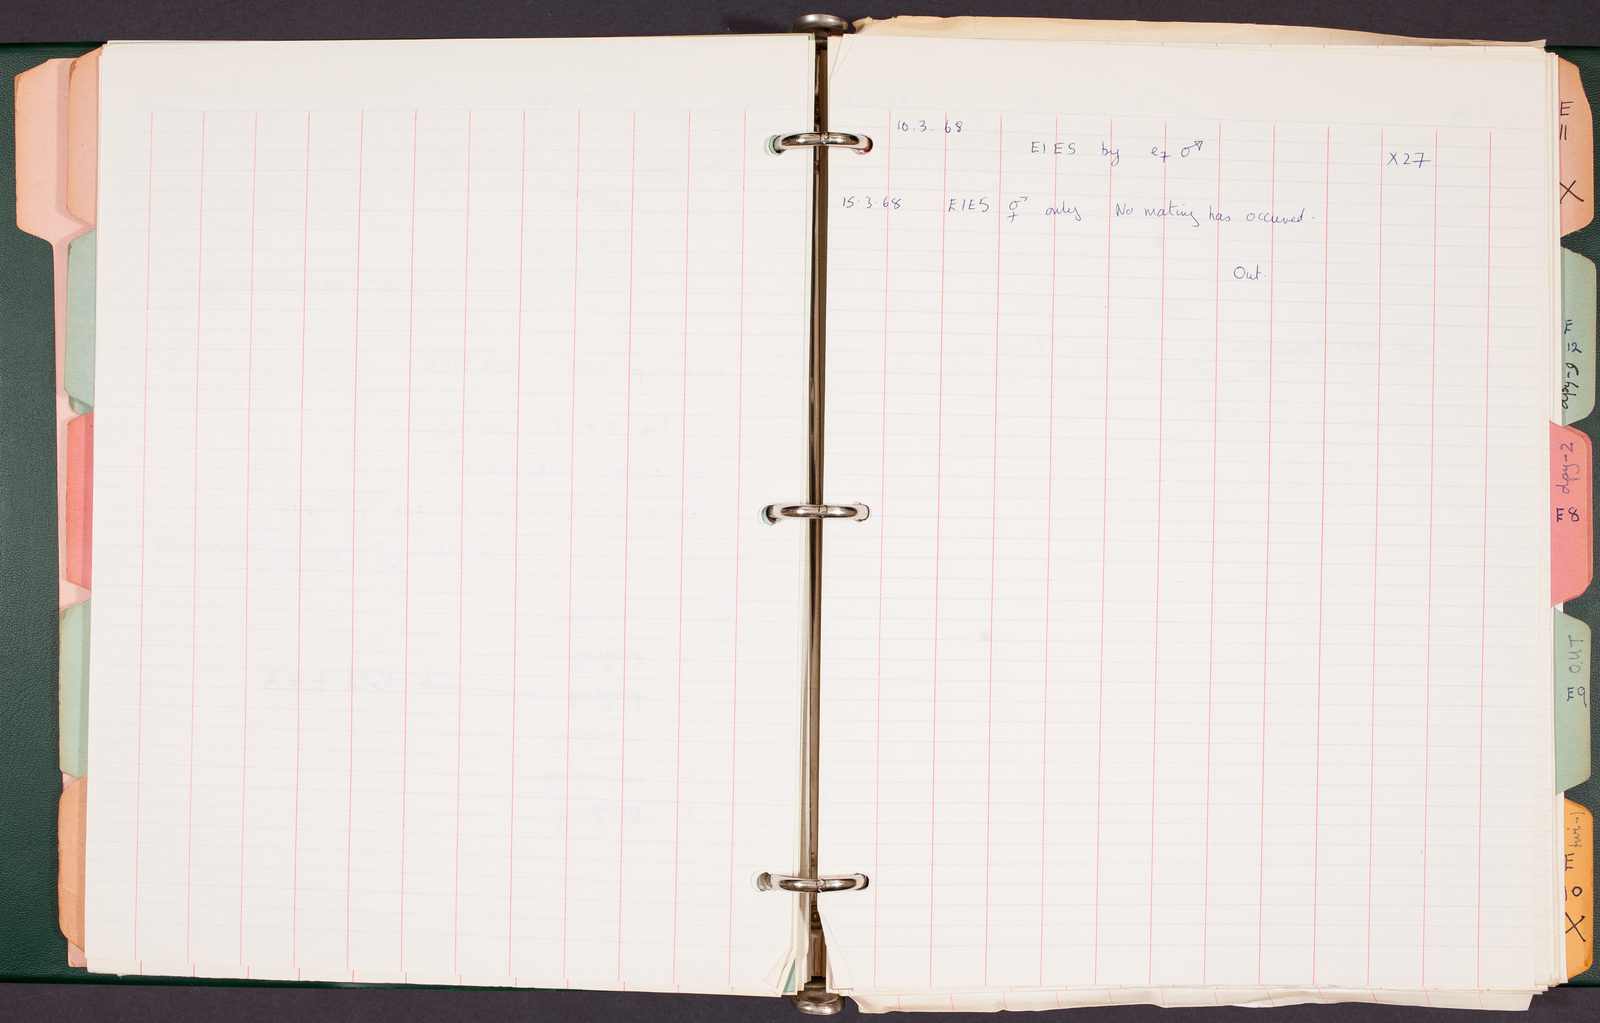 10.3.68
E1E5 by e7 ♂ X27
15.3.68 E1E5 ⚥ only No mating has occured.
Out.
E
11
X
E
12
dpy-9
dpy-2
E8
OUT
E9
twi-1
E
10
X